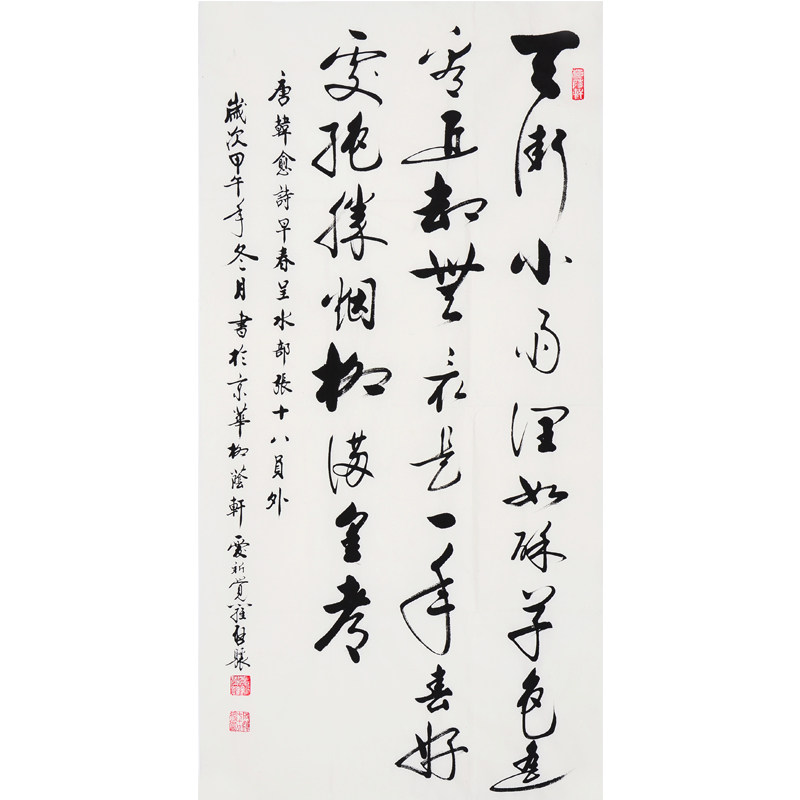 天街小雨潤如酥草色遙
看近却無最是一年春好
處絕勝烟柳滿皇都
唐韓愈詩早春呈水部張十八員外
歲次甲午年冬月書於京華柳蔭軒愛新覺羅啟驤